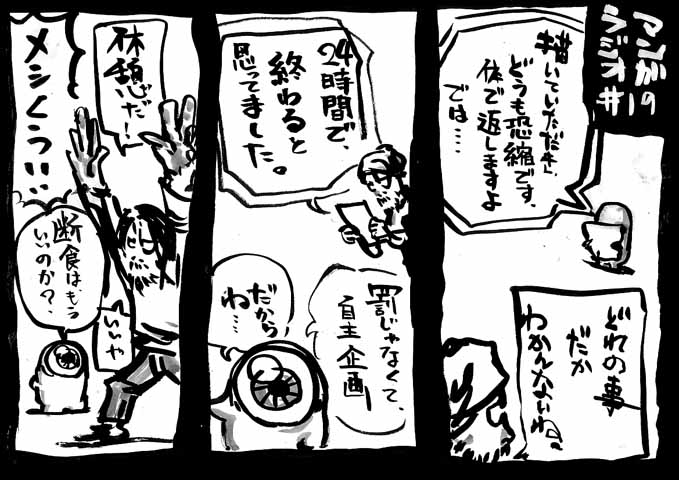 マンガの
ラジオ#1
描いていただき、
どうも恐縮です。
体で返しますよ
では……
どれの事
だか
わかんないね。
24時間で、
終わると
思ってました。
罰じゃなくて、
自主企画
だから
ね……
休憩だ!
メシくうい:
断食はもう
いいのか?
いいや